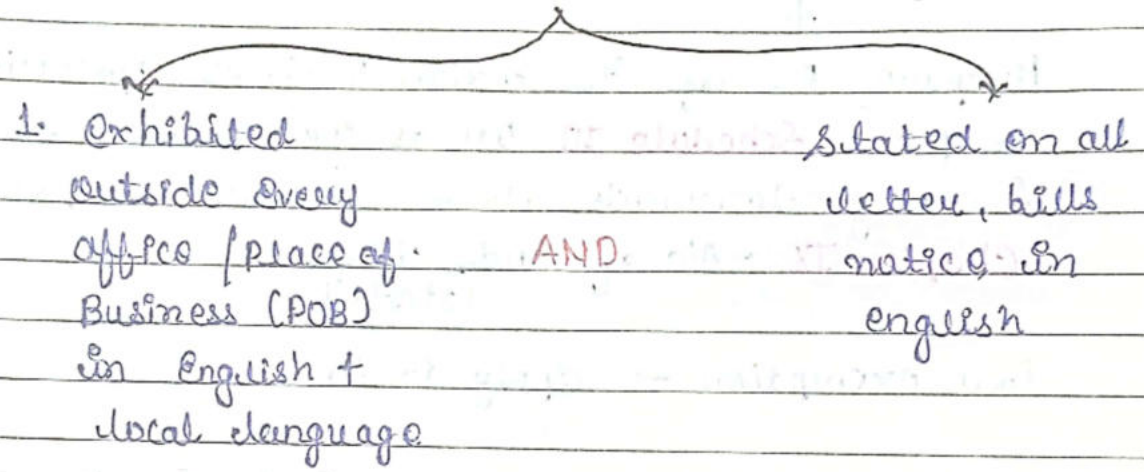 1. Exhibited
outside every
office / Place of.
Business (POB)
in English +
local language
AND
Stated on all
letter, bills
notice in
english